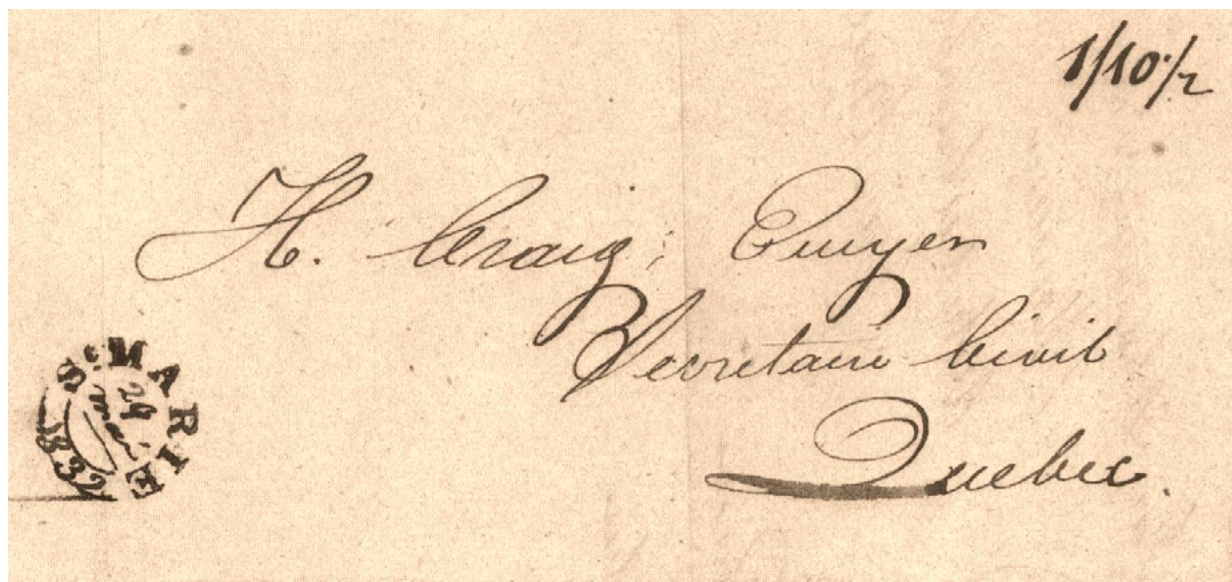 1/10½
H. Craig, Ecuyer
Secretaire Civil
Quebec.
St MARIE
29